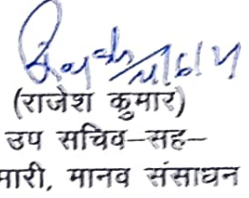 (राजेश कुमार)
उप सचिव-सह-
मारी, मानव संसाधन